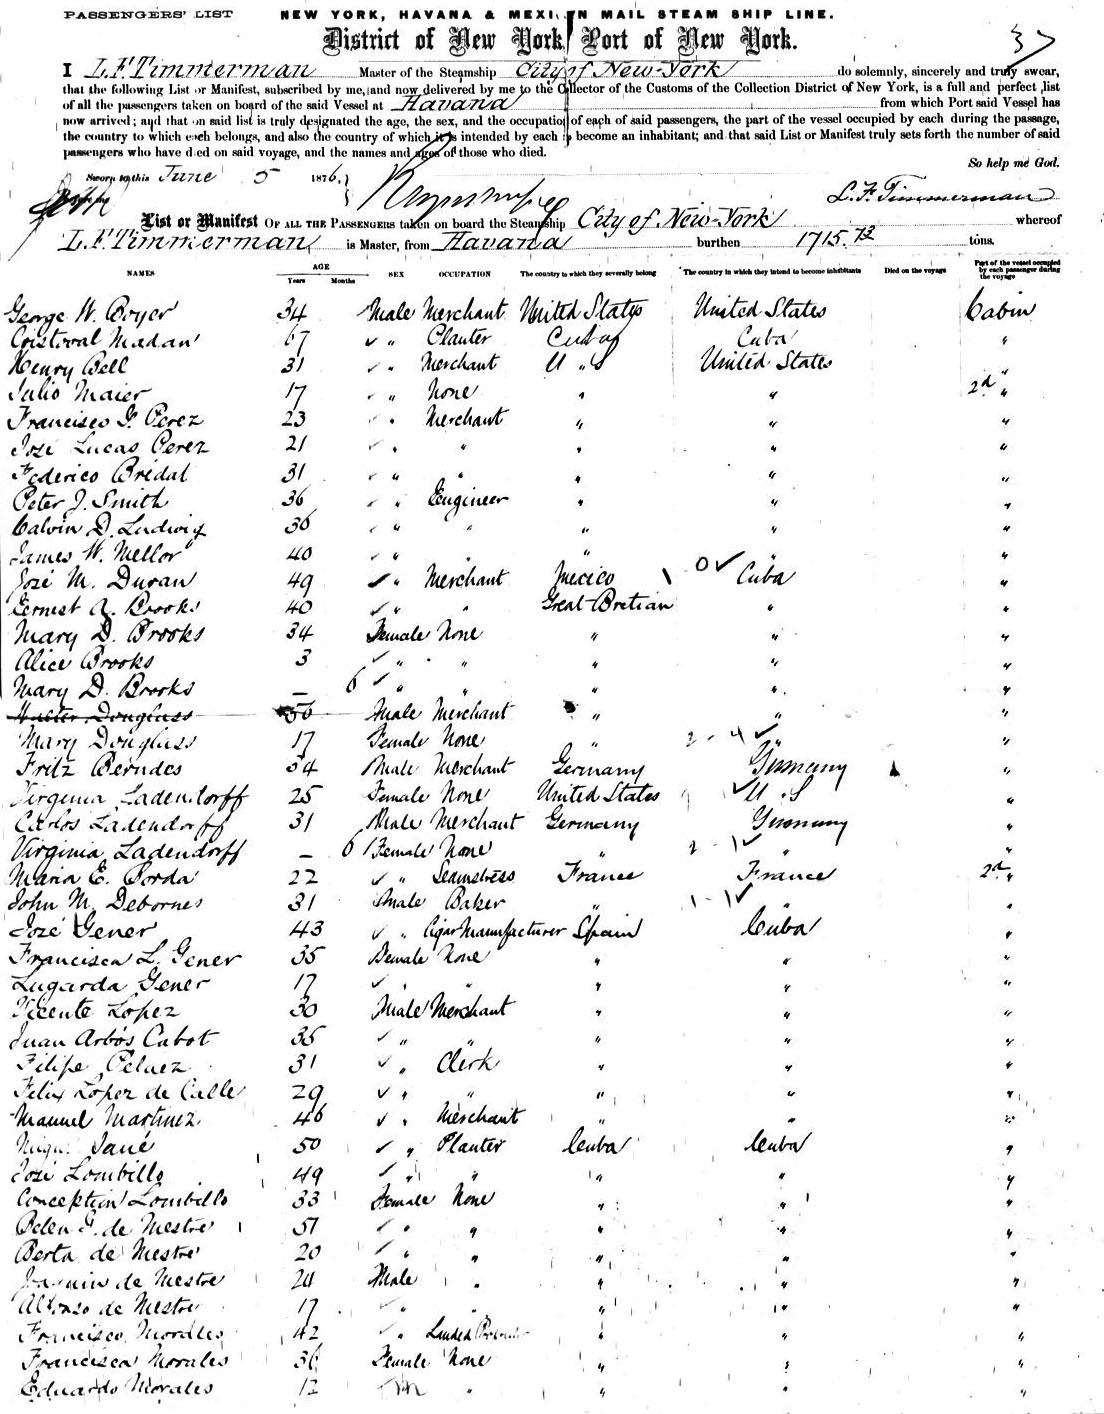 PASSENGERS' LIST NEW YORK, HAVANA & MEXI N MAIL STEAM SHIP LINE.
District of New York Port of New York.
37
I L. F. Timmerman Master of the Steamship City of New-York do solemnly, sincerely and truly swear,
that the following List or Manifest, subscribed by me, and now delivered by me to the Collector of the Customs of the Collection District of New York, is a full and perfect list
of all the passengers taken on board of the said Vessel at Havana from which Port said Vessel has
now arrived; and that on said list is truly designated the age, the sex, and the occupation of each of said passengers, the part of the vessel occupied by each during the passage,
the country to which each belongs, and also the country of which it is intended by each to become an inhabitant; and that said List or Manifest truly sets forth the number of said
passengers who have died on said voyage, and the names and ages of those who died.
So help me God.
Sworn to this June 5 1876,
L. F. Timmerman
List or Manifest OF ALL THE PASSENGERS taken on board the Steamship City of New-York whereof
L. F. Timmerman is Master, from Havana burthen 1715.72 tons.
NAMES AGE Years Months SEX OCCUPATION The country to which they severally belong The country in which they intend to become inhabitants Died on the voyage Part of the vessel occupied by each passenger during the voyage
George W. Boyer 34 Male Merchant United States United States Cabin
Cristoval Madan 67 " Planter Cuba Cuba "
Henry Bell 31 " Merchant U " S United States "
Julio Maier 17 " None " " 2d "
Francisco G. Perez 23 " Merchant " " "
José Lucas Perez 21 " " " " "
Federico Bridat 31 " " " " "
Peter J. Smith 36 " Engineer " " "
Calvin D. Ludwig 36 " " " " "
James W. Mellor 40 " " " " "
José M. Duran 49 " Merchant Mecico 0 Cuba "
Ernest A. Brooks 40 " " Great-Bretian " "
Mary D. Brooks 34 Female None " " "
Alice Brooks 3 " " " " "
Mary D. Brooks – 6 " " " " "
Walter Douglass 56 Male Merchant " " "
Mary Douglass 17 Female None " 2 - 4 " "
Fritz Berndes 34 Male Merchant Germany Germany "
Virginia Ladendorff 25 Female None United States U " S "
Carlos Ladendorff 31 Male Merchant Germany Germany "
Virginia Ladendorff – 6 Female None " 2 - 1 " "
Maria E. Porda 22 " Seamstress France France 2d "
John M. Debornes 31 Male Baker " 1 - 1 " "
José Gener 43 " Cigar Manufacturer Spain Cuba "
Francisca L. Gener 35 Female None " " "
Lugarda Gener 17 " " " " "
Vicente Lopez 30 Male Merchant " " "
Juan Arbós Cabot 35 " " " " "
Filipe Pelaez 31 " Clerk " " "
Felix Lopez de Calle 29 " " " " "
Manuel Martinez 46 " Merchant " " "
Jané 50 " Planter Cuba Cuba "
José Lombillo 49 " " " " "
Conception Lombillo 33 Female None " " "
Belen G. de Mestre 51 " " " " "
Berta de Mestre 20 " " " " "
Joaquin de Mestre 20 Male " " " "
Alfonso de Mestre 17 " " " " "
Francisco Morales 42 " Landed " " "
Francisca Morales 36 Female None " " "
Eduardo Morales 12 " " " "